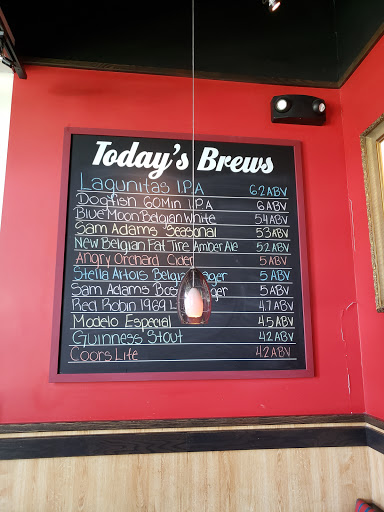 Today's Brews
Lagunitas IPA 6.2 ABV
Dogfish 60 Min I.P.A 6 ABV
Blue Moon Belgian White 5.4 ABV
Sam Adams Seasonal 5.3 ABV
New Belgian Fat Tire Amber Ale 5.2 ABV
Angry Orchard Cider 5 ABV
Stella Artois 5 ABV
Sam Adams 5 ABV
Red Robin 1969 4.7 ABV
Modelo Especial 4.5 ABV
Guinness Stout 4.2 ABV
Coors Life 4.2 ABV